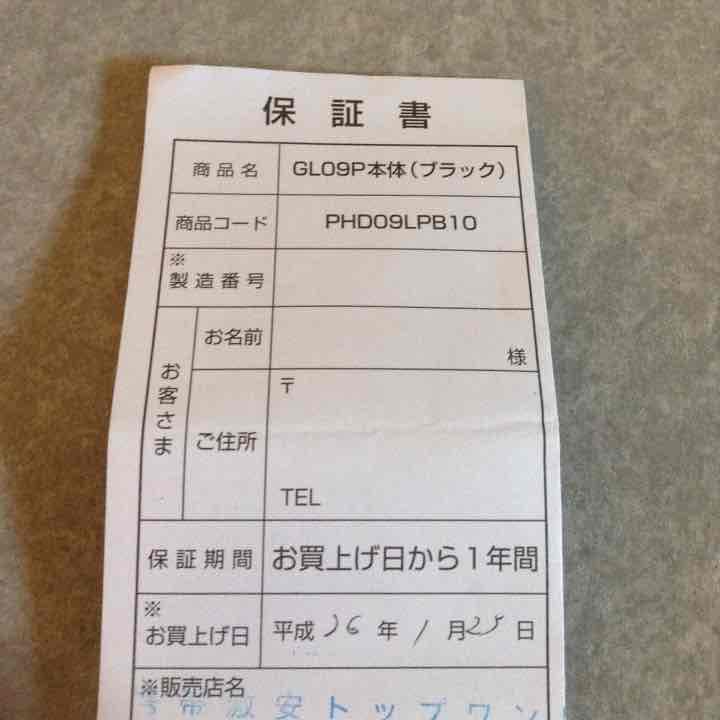 保証書
商品名 GL09P本体(ブラック)
商品コード PHD09LPB10
※
製造番号
お客さま
お名前 様
ご住所 〒
TEL
保証期間 お買上げ日から1年間
※
お買上げ日 平成26年1月25日
※販売店名
帯激安トップワン